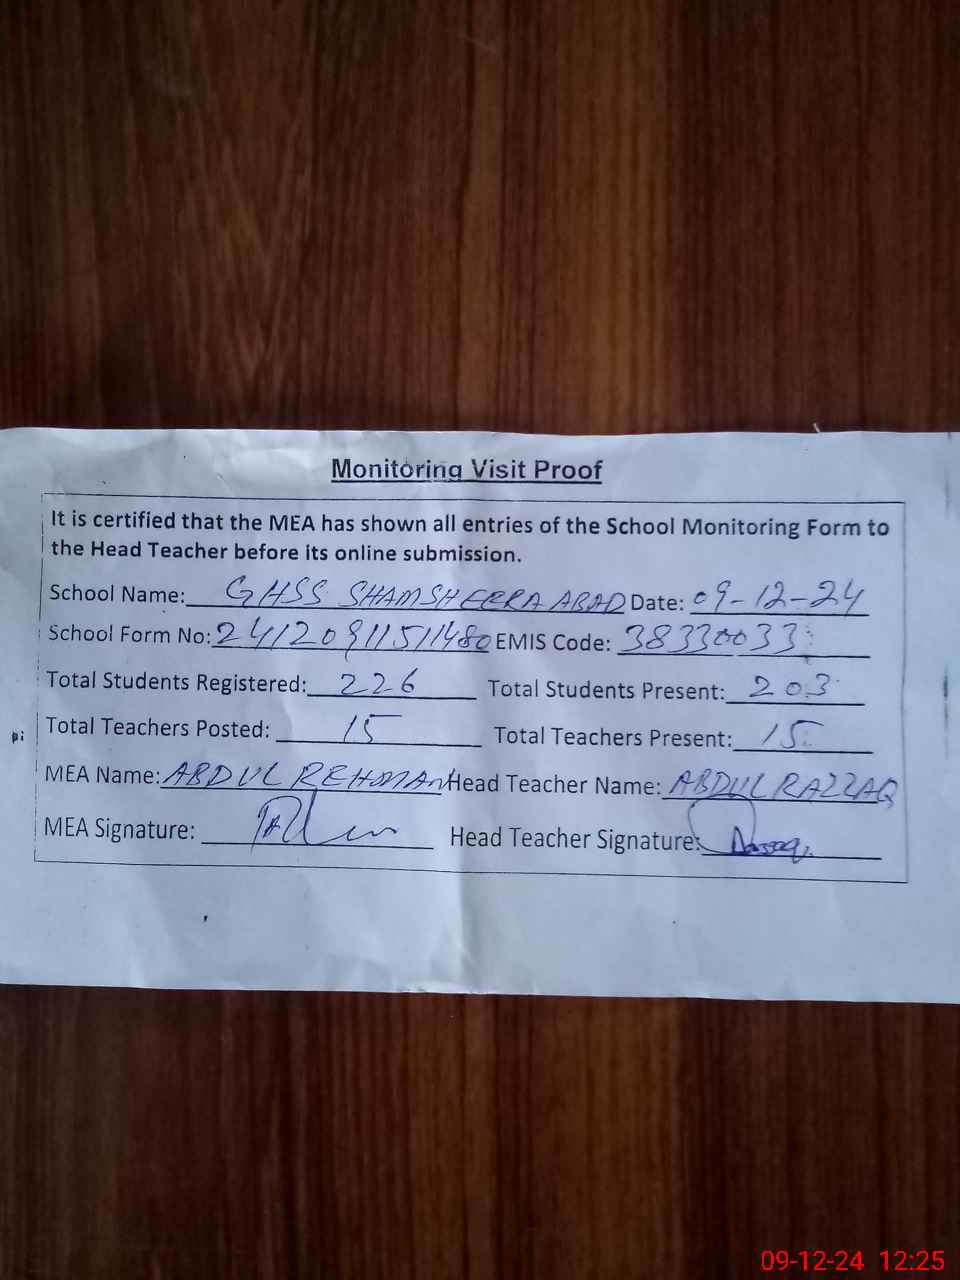 Monitoring Visit Proof
It is certified that the MEA has shown all entries of the School Monitoring Form to
the Head Teacher before its online submission.
School Name: GHSS SHAMSHEERA ABAD Date: 09-12-24
School Form No: 24120911511480 EMIS Code: 38330033
Total Students Registered: 226 Total Students Present: 203
Total Teachers Posted: 15 Total Teachers Present: 15
pi
MEA Name: ABDUL REHMAN Head Teacher Name: ABDUL RAZZAQ
MEA Signature: Head Teacher Signature:
09-12-24 12:25